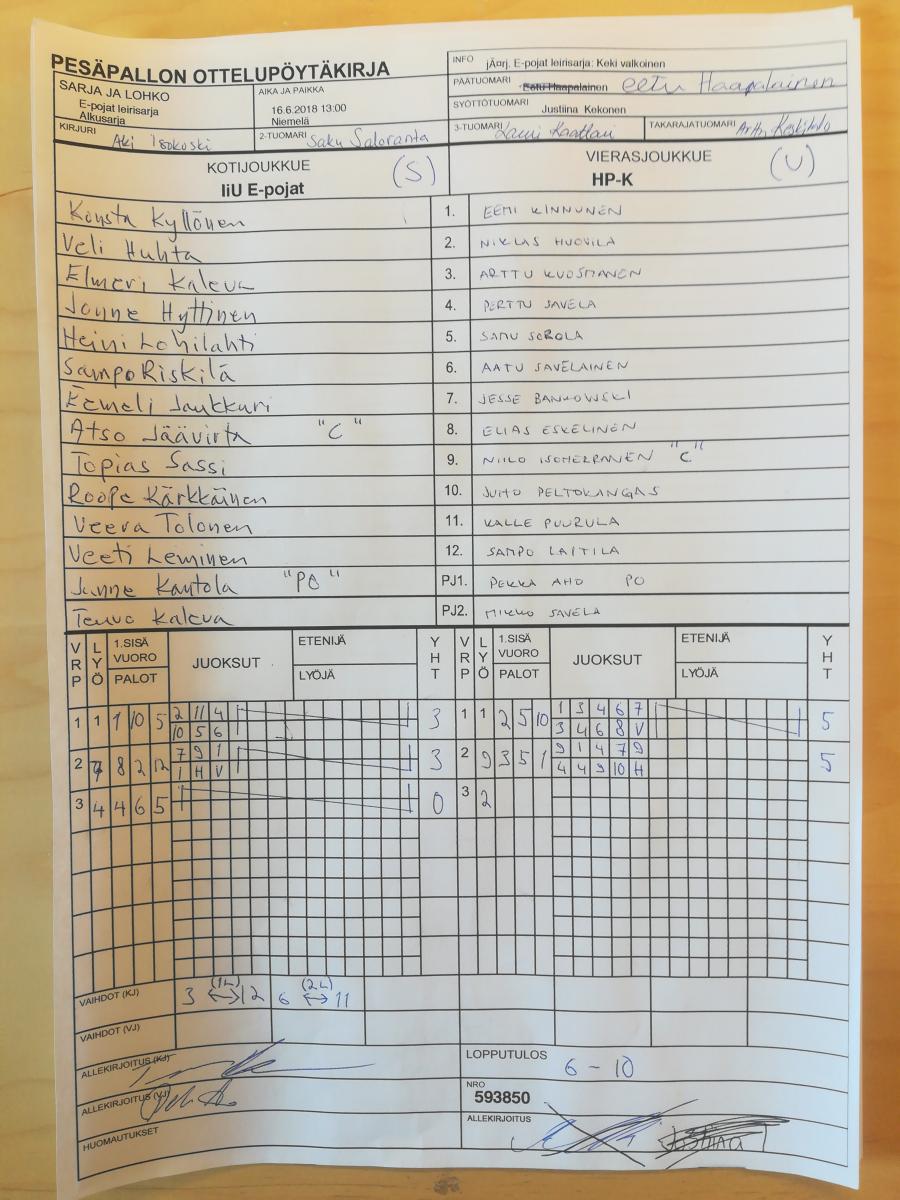 PESÄPALLON OTTELUPÖYTÄKIRJA
SARJA JA LOHKO
E-pojat leirisarja
Alkusarja
AIKA JA PAIKKA
16.6.2018 13:00
Niemelä
KIRJURI
Aki Isokoski
2-TUOMARI
Saku Saloranta
INFO jÃ¤rj. E-pojat leirisarja: Keki valkoinen
PÄÄTUOMARI Eetu Haapalainen eetu Haapalainen
SYÖTTÖTUOMARI Justiina Kekonen
3-TUOMARI Lauri Kaattari
TAKARAJATUOMARI
KOTIJOUKKUE (S)
IiU E-pojat
VIERASJOUKKUE (U)
HP-K
Konsta Kyllönen 1. EEMI KINNUNEN
Veli Huhta 2. NIKLAS HUOVILA
Elmeri Kaleva 3. ARTTU KUOSMANEN
Janne Hyttinen 4. PERTTU SAVELA
Heini Lohilahti 5. SAMU SOROLA
Sampo Riskilä 6. AATU SAVELAINEN
Eemeli Jaukkuri 7. JESSE BANKOWSKI
Atso Jäävirta "C" 8. ELIAS ESKELINEN
Topias Sassi 9. NIILO ISOHERRANEN "C"
Roope Kärkkäinen 10. JUHO PELTOKANGAS
Veera Tolonen 11. KALLE PUURULA
Veeti Leminen 12. SAMPO LAITILA
Janne Kantola "PO" PJ1. PEKKA AHO PO
Teuvo Kaleva PJ2. MIKKO SAVELA
VRP LYÖ 1.SISÄ VUORO PALOT JUOKSUT ETENIJÄ LYÖJÄ YHT VRP LYÖ 1.SISÄ VUORO PALOT JUOKSUT ETENIJÄ LYÖJÄ YHT
1 1 1 10 5 2 11 4 3 1 1 2 5 10 1 3 4 6 7 5
10 5 6 3 4 6 8 V
2 7 8 2 12 7 9 1 3 2 9 3 5 1 9 1 4 7 9 5
1 H V 4 4 9 10 H
3 4 4 6 5 0 3 2
VAIHDOT (KJ) 3 (1L) ↔ 12 6 (2L) ↔ 11
VAIHDOT (VJ)
ALLEKIRJOITUS (KJ)
ALLEKIRJOITUS (VJ)
HUOMAUTUKSET
LOPPUTULOS
6 - 10
NRO
593850
ALLEKIRJOITUS